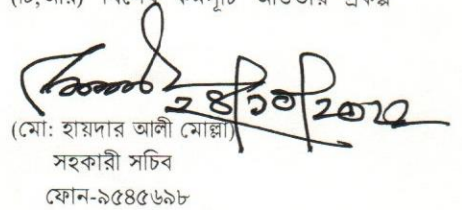 (টি,আর) বিশেষ কর্মসূচি আওতায় প্রকল্প
২৪/১০/২০১২
(মো: হায়দার আলী মোল্লা)
সহকারী সচিব
ফোন-৯৫৪৫৬৯৮